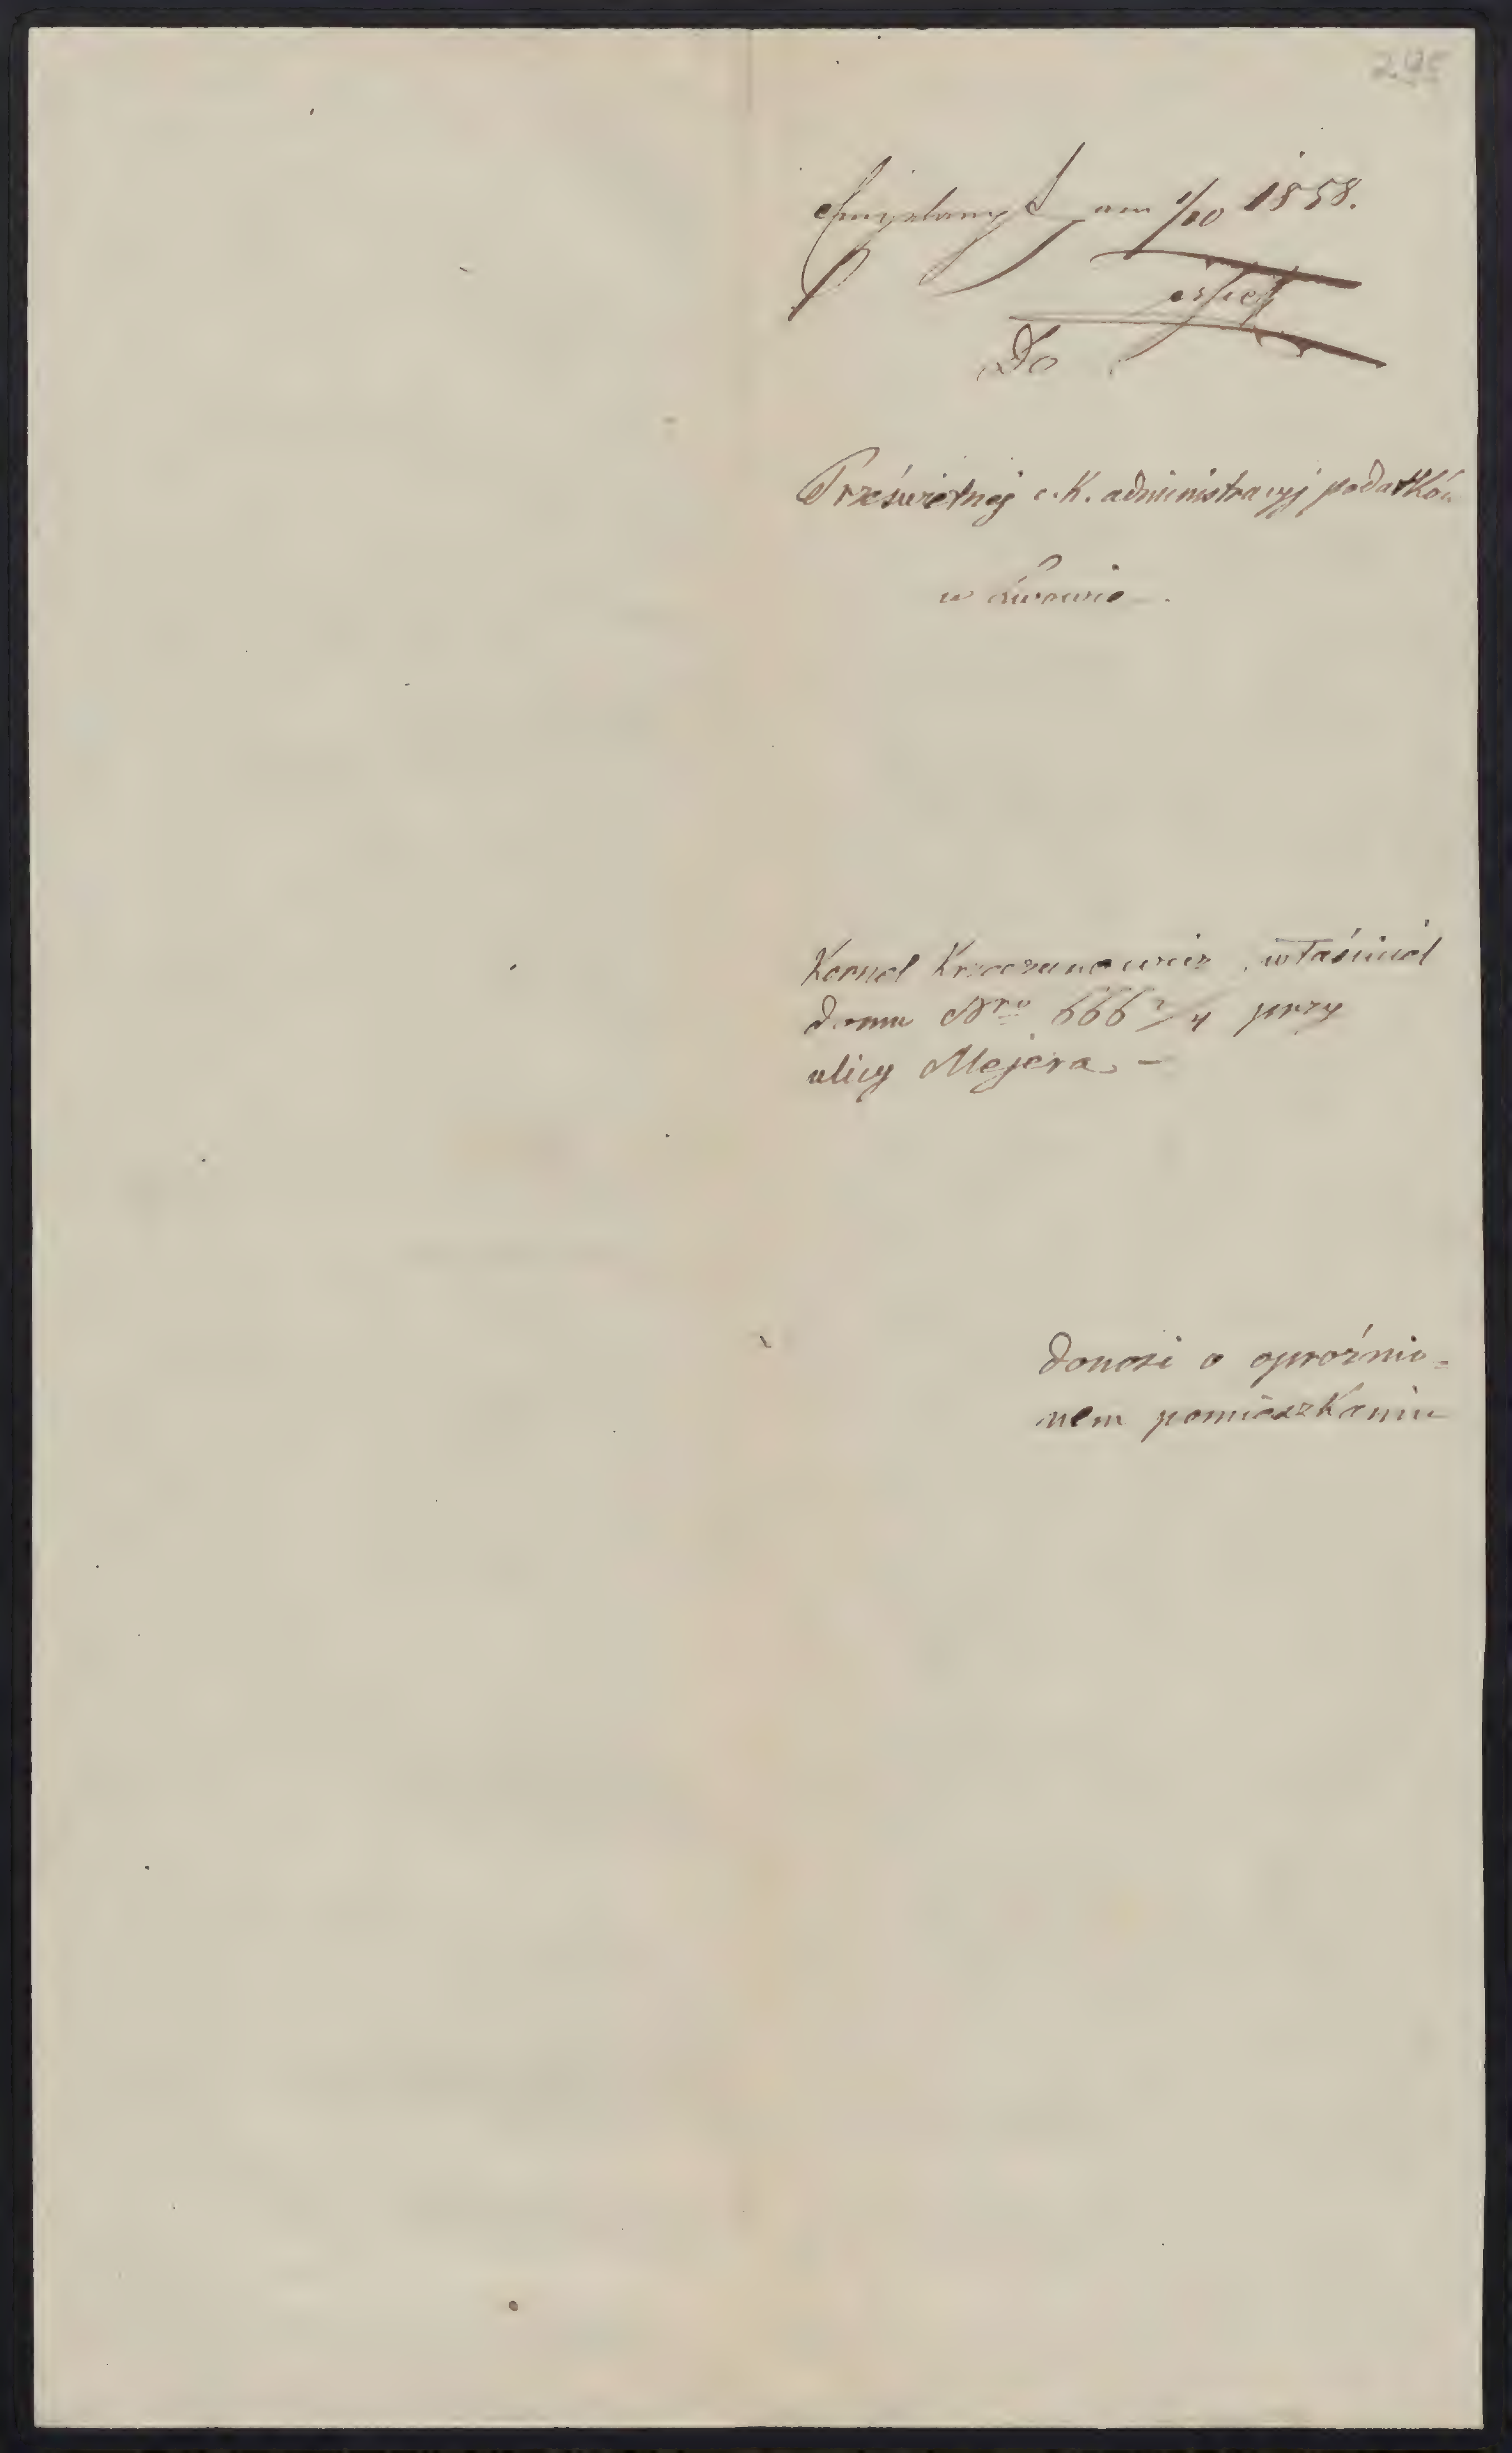 am 1/10 1858.
Do
Prześwietnej c.K. administracyj podatków
w Lwowie.
Kornel Krzeczunowicz, właściciel
domu Nro 666 2/4 przy
ulicy Mejera. –
donosi o opróżnio=
nem pomieszkaniu